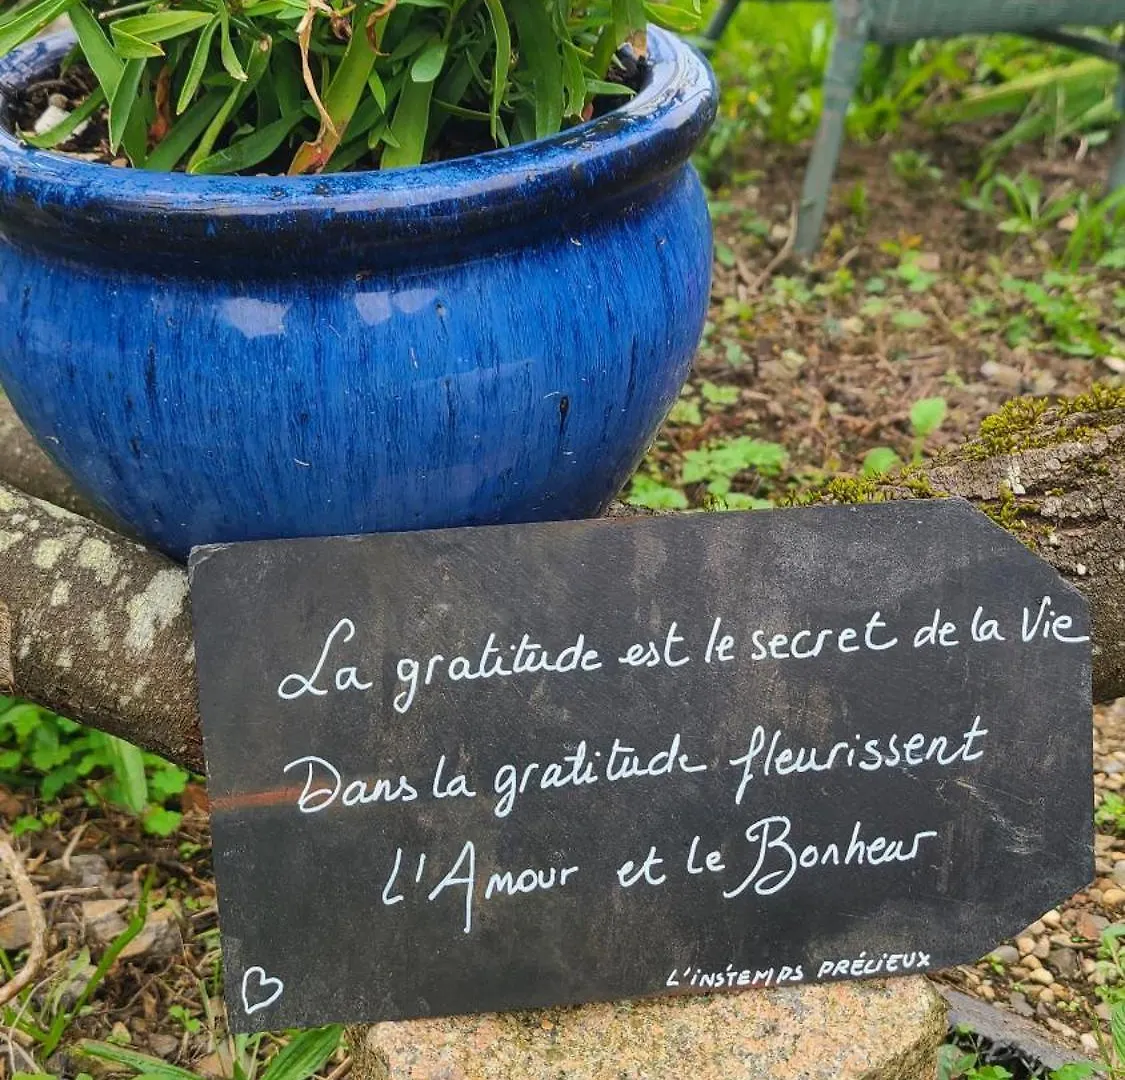 La gratitude est le secret de la Vie
Dans la gratitude fleurissent
L'Amour et le Bonheur
L'INSTEMPS PRÉCIEUX